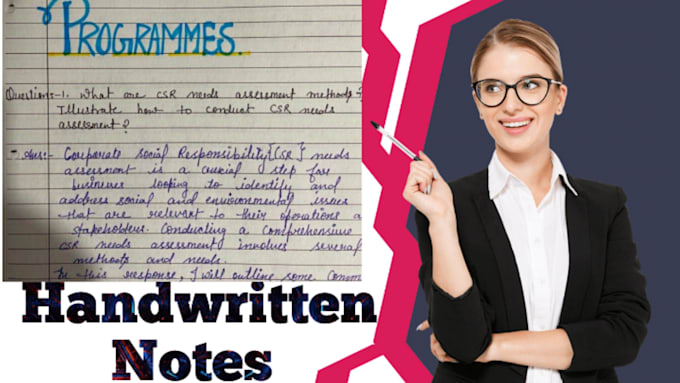 PROGRAMMES.
Question:-1. What are CSR needs assessment methods?
Illustrate how to conduct CSR needs
assessment?
Ans:- Corporate Social Responsibility{CSR} needs
assessment is a crucial step for
businesses looping to identify and
address social and environmental issues
that are relevant to their operations a
stakeholders. Conducting a comprehensive
CSR needs assessment involves several
methods and needs.
In this response, I will outline some Comm
Handwritten
Notes